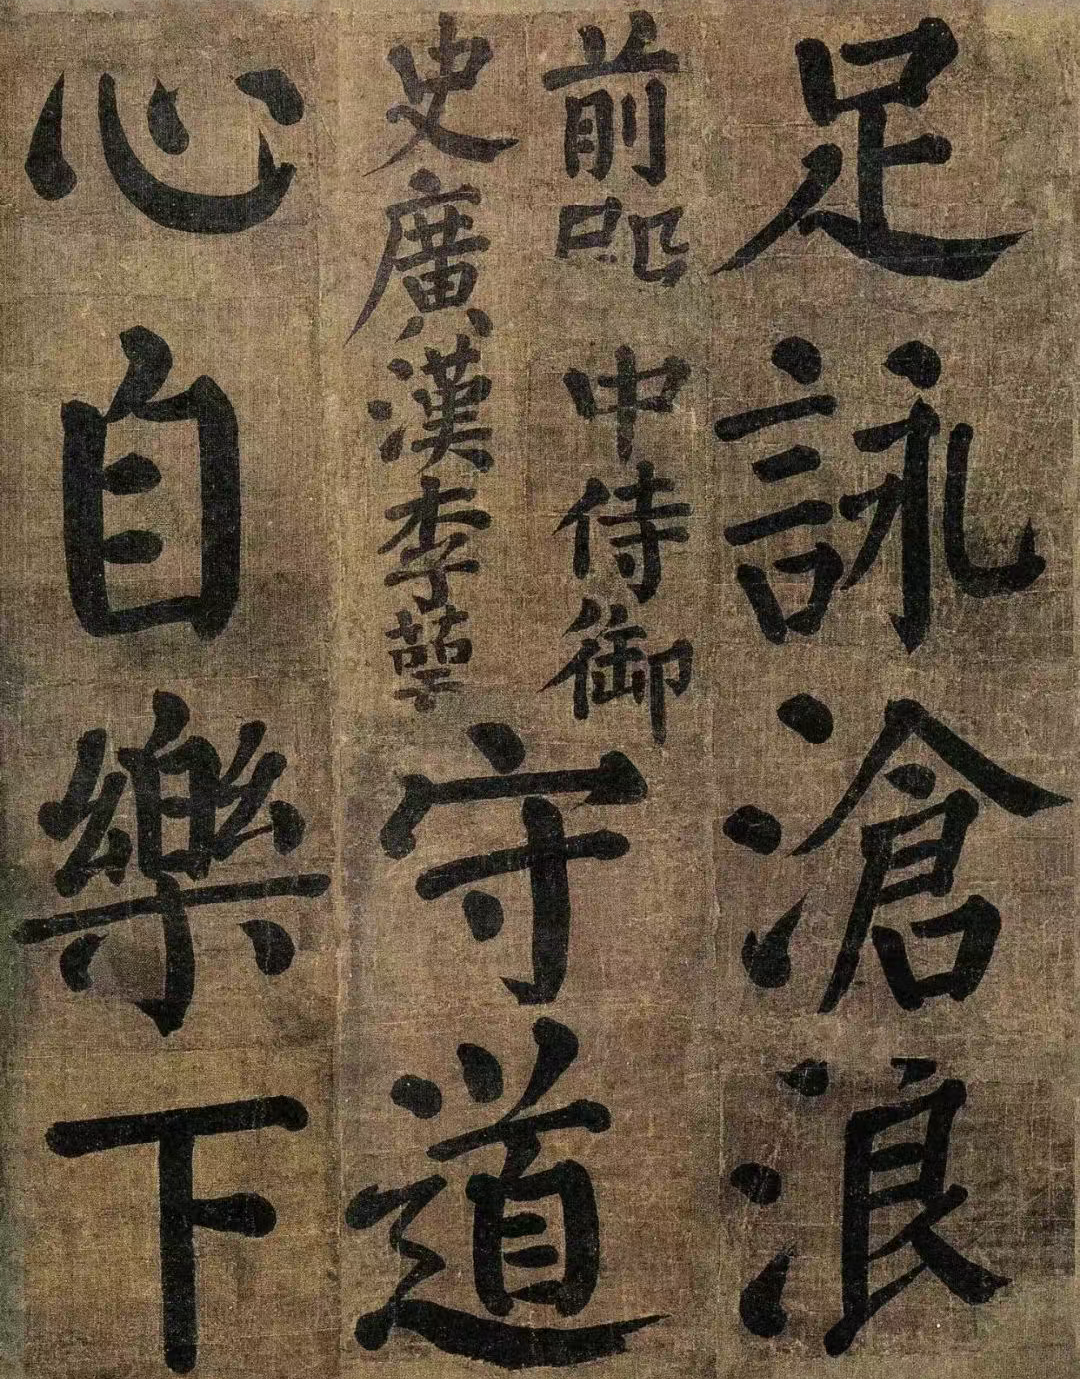 足詠滄浪
前中侍御
史廣漢李萼
守道
心自樂下